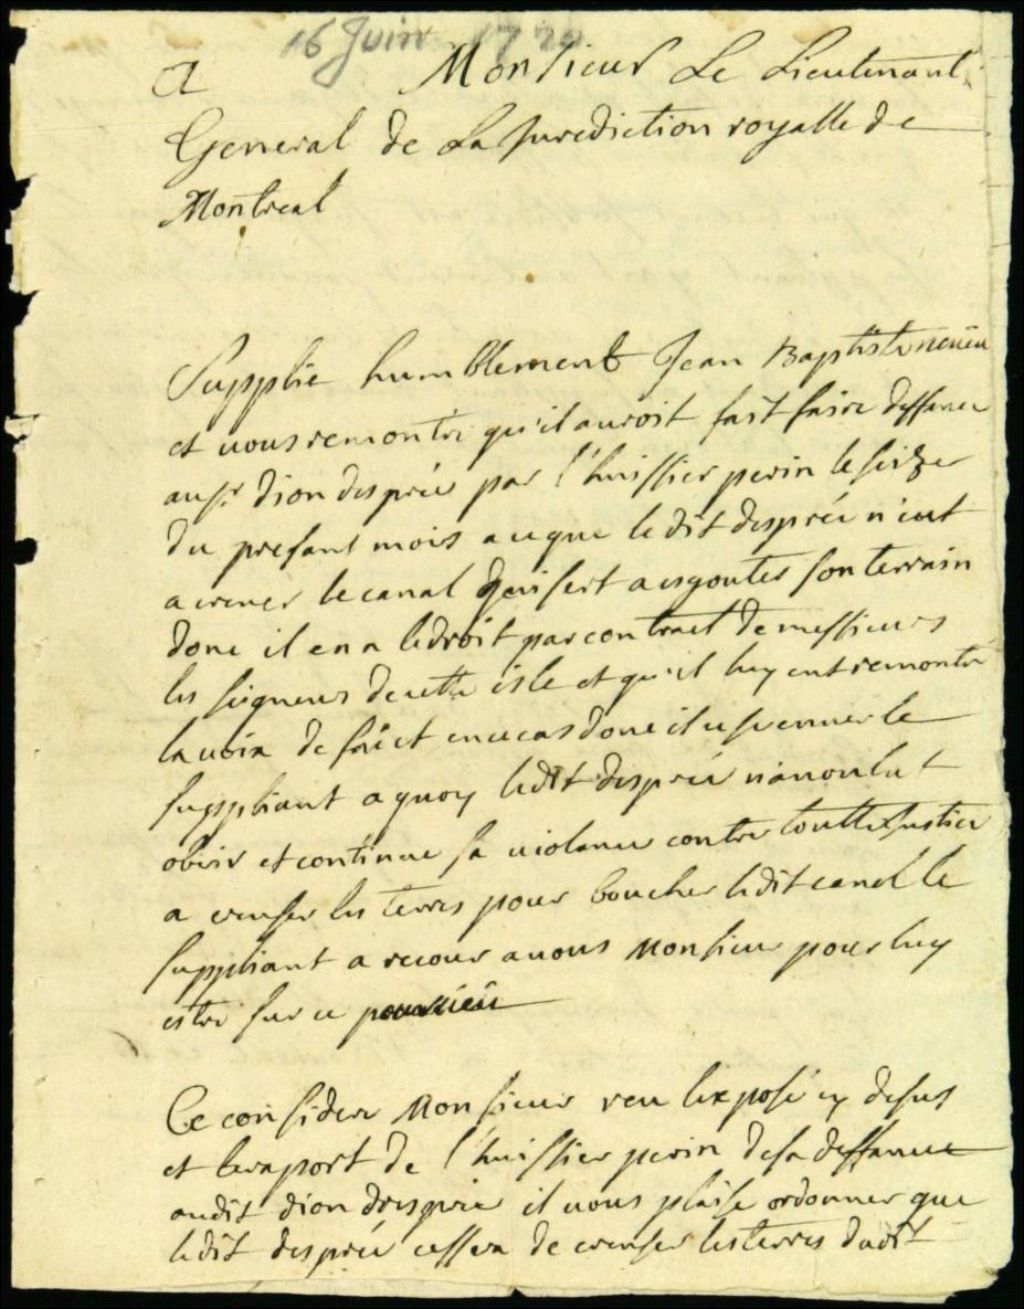 16 Juin 1720
A Monsieur Le Lieutenant
General de La Jurediction royalle de
Montreal
Supplie humblement Jean Baptiste neveu
et vous remontre qu'il auroit fait faire deffance
au sr. dion despré par l'huissier perin le seize
du presant mois a ce que le dit despré n'eut
a crever le canal qui sert a esgouter son terrain
donc il en a le droit par contract de messieurs
les seigneurs de cette isle et qu'il luy eut remontre
la voix de fait en ce cas donc il use envers le
suppliant a quoy ledit despré n'a voulut
obeir et continue sa violance contre toutte Justice
a creuser les terres pour boucher ledit canal le
suppliant a recour a vous Monsieur pour luy
estre sur ce pourveu
Ce consideré Monsieur veu l'exposé cy desus
et le raport de l'huissier perin de sa deffance
audit dion despré il vous plaise ordonner que
ledit despré cessera de creuser les terres dudit